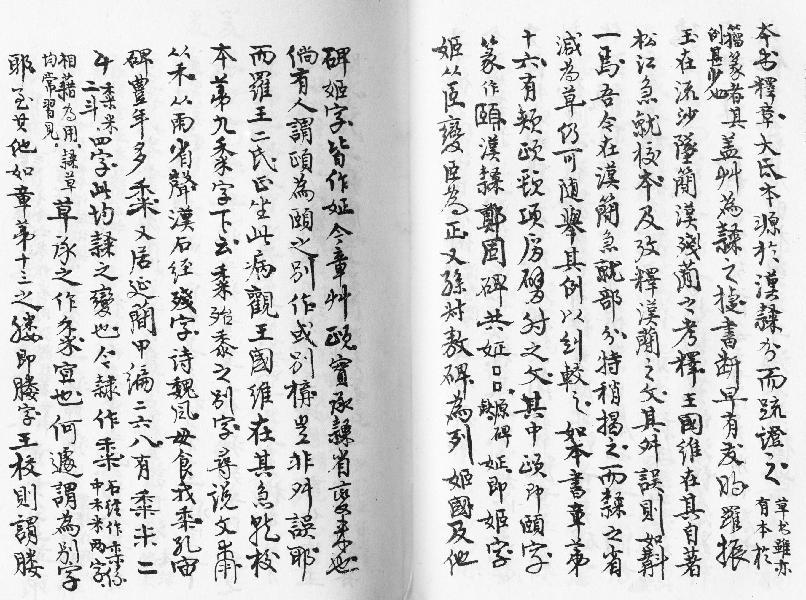 本书釋章大氐本源於漢隸分而疏證之草书雖亦有本於
籀篆者其例甚少也蓋艸為隸之捷書斷早有友助羅振
玉在流沙墜簡漢殘簡之考釋王國維在其自著
松江急就校本及攷釋漢蘭之文其舛誤則如
一焉吾今在漢簡急就部分特稍揭之而隸之省
減為草仍可随舉其例以糾較之如本書章第
十六有頰頤頸項肩臂肘之文其中頤即頤字
篆作頤漢隸鄭固碑共姃口口原碑缺姃即姬字
姬从臣變臣為正又孫叔敖碑為列姬國及他
碑姬字皆作姃今章艸頤實承隸省變来也
倘有人謂頤為頤之别作或别構豈非舛誤耶
而羅王二氏正坐此病觀王國維在其急就校
本第九黍字下云桼殆黍之别字尋說文黍
从禾从雨省聲漢石經殘字诗魏風毋食我黍孔宙
碑豐年多黍又居延簡甲編二六八有黍米二
斗桼米二斗四字此均隸之變也今隸作桼石經作桼係中木米两字
相藉為用隸草均常習見草承之作桼宜也何遽謂為别字
耶至其他如章第十三之縢即縢字王校則謂縢